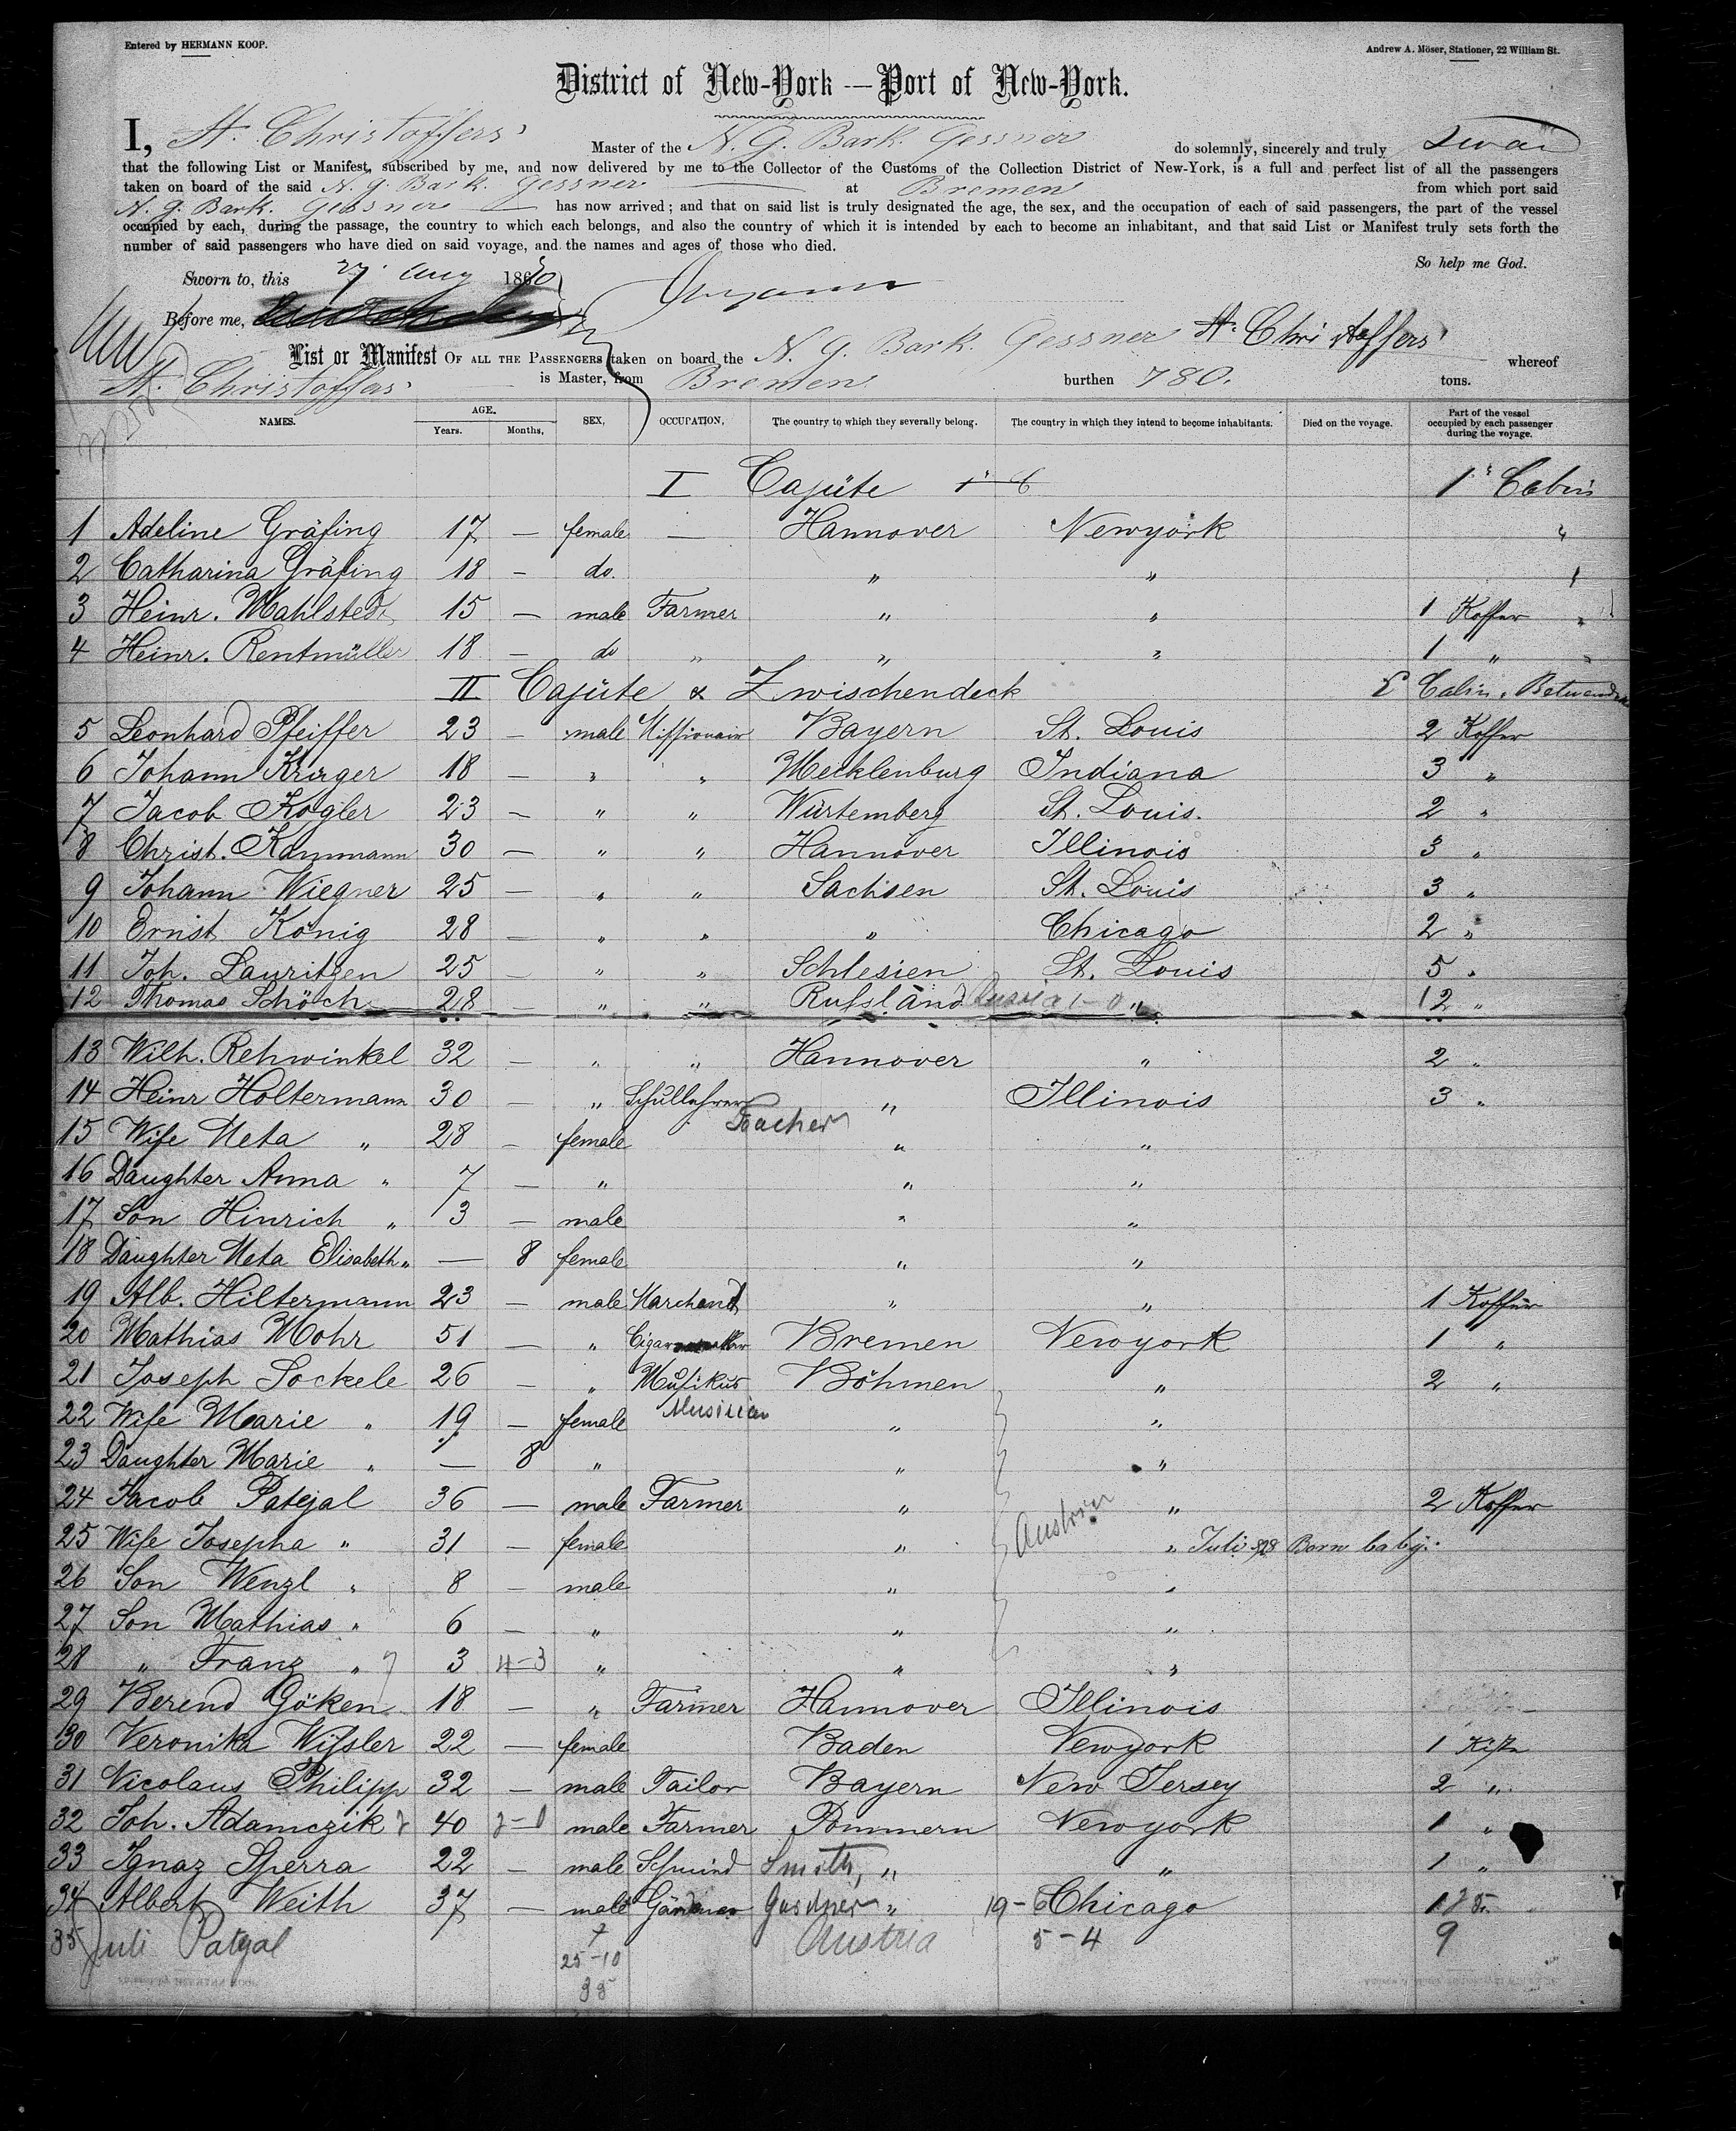 Entered by HERMANN KOOP.
Andrew A. Möser, Stationer, 22 William St.
District of New-York — Port of New-York.
I, H. Christoffers Master of the N. G. Bark. Gessner do solemnly, sincerely and truly swear
that the following List or Manifest, subscribed by me, and now delivered by me to the Collector of the Customs of the Collection District of New-York, is a full and perfect list of all the passengers
taken on board of the said N. G. Bark. Gessner at Bremen from which port said
N. G. Bark. Gessner has now arrived; and that on said list is truly designated the age, the sex, and the occupation of each of said passengers, the part of the vessel
occupied by each, during the passage, the country to which each belongs, and also the country of which it is intended by each to become an inhabitant, and that said List or Manifest truly sets forth the
number of said passengers who have died on said voyage, and the names and ages of those who died.
So help me God.
Sworn to, this 27 Aug 1870
Before me,
H. Christoffers
List or Manifest OF ALL THE PASSENGERS taken on board the N. G. Bark. Gessner whereof
H. Christoffers is Master, from Bremen burthen 780. tons.
NAMES. AGE. Years. Months, SEX, OCCUPATION, The country to which they severally belong. The country in which they intend to become inhabitants. Died on the voyage. Part of the vessel occupied by each passenger during the voyage.
I Cajüte 1 Cabin
1 Adeline Gräfing 17 — female — Hannover Newyork "
2 Catharina Gräfing 18 — do. " "
3 Heinr. Mahlstedt 15 — male Farmer " " 1 Koffer "
4 Heinr. Rentmüller 18 — do " " " 1 " "
II Cajüte & Zwischendeck Cabin
5 Leonhard Pfeiffer 23 — male Missionair Bayern St. Louis 2 Koffer
6 Johann Krüger 18 — " " Mecklenburg Indiana 3 "
7 Jacob Kogler 23 — " " Würtemberg St. Louis. 2 "
8 Christ. Kammann 30 — " " Hannover Illinois 3 "
9 Johann Wiegner 25 — " " Sachsen St. Louis 3 "
10 Ernst König 28 — " " " Chicago 2 "
11 Joh. Lauritzen 25 — " " Schlesien St. Louis 5 "
12 Thomas Schöch 28 — " " Russland Russia 1-0 " 12 "
13 Wilh. Rehwinkel 32 — " " Hannover " 2 "
14 Heinr Holtermann 30 — " Schullehrer " Illinois 3 "
Teacher
15 Wife Meta " 28 — female " "
16 Daughter Anna " 7 — " " "
17 Son Hinrich " 3 — male " "
18 Daughter Meta Elisabeth " — 8 female " "
19 Alb. Hiltermann 23 — male Marchand " " 1 Koffer
20 Mathias Mohr 51 — " Cigarmaker Bremen Newyork 1 "
21 Joseph Sockele 26 — " Musikus Böhmen " 2 "
Musician
22 Wife Marie " 19 — female " "
23 Daughter Marie " — 8 " " "
24 Jacob Patejal 36 — male Farmer " " 2 Koffer
Austria
25 Wife Josepha " 31 — female " " Juli 28 Born baby.
26 Son Wenzl " 8 — male " "
27 Son Mathias " 6 — " " "
28 " Franz " 3 4-3 " " "
29 Berend Göken 18 — " Farmer Hannover Illinois
30 Veronika Wissler 22 — female Baden Newyork 1 Kiste
31 Nicolaus Philipp 32 — male Tailor Bayern New Jersey 2 "
32 Joh. Adamczik 40 2-0 male Farmer Pommern Newyork 1 "
33 Ignaz Sperra 22 — male Schmied Smith, " " 1 "
34 Albert Weith 37 — male Gärtner Gardner " 19-6 Chicago
35 Juli Patejal Austria 5-4 9
25-10